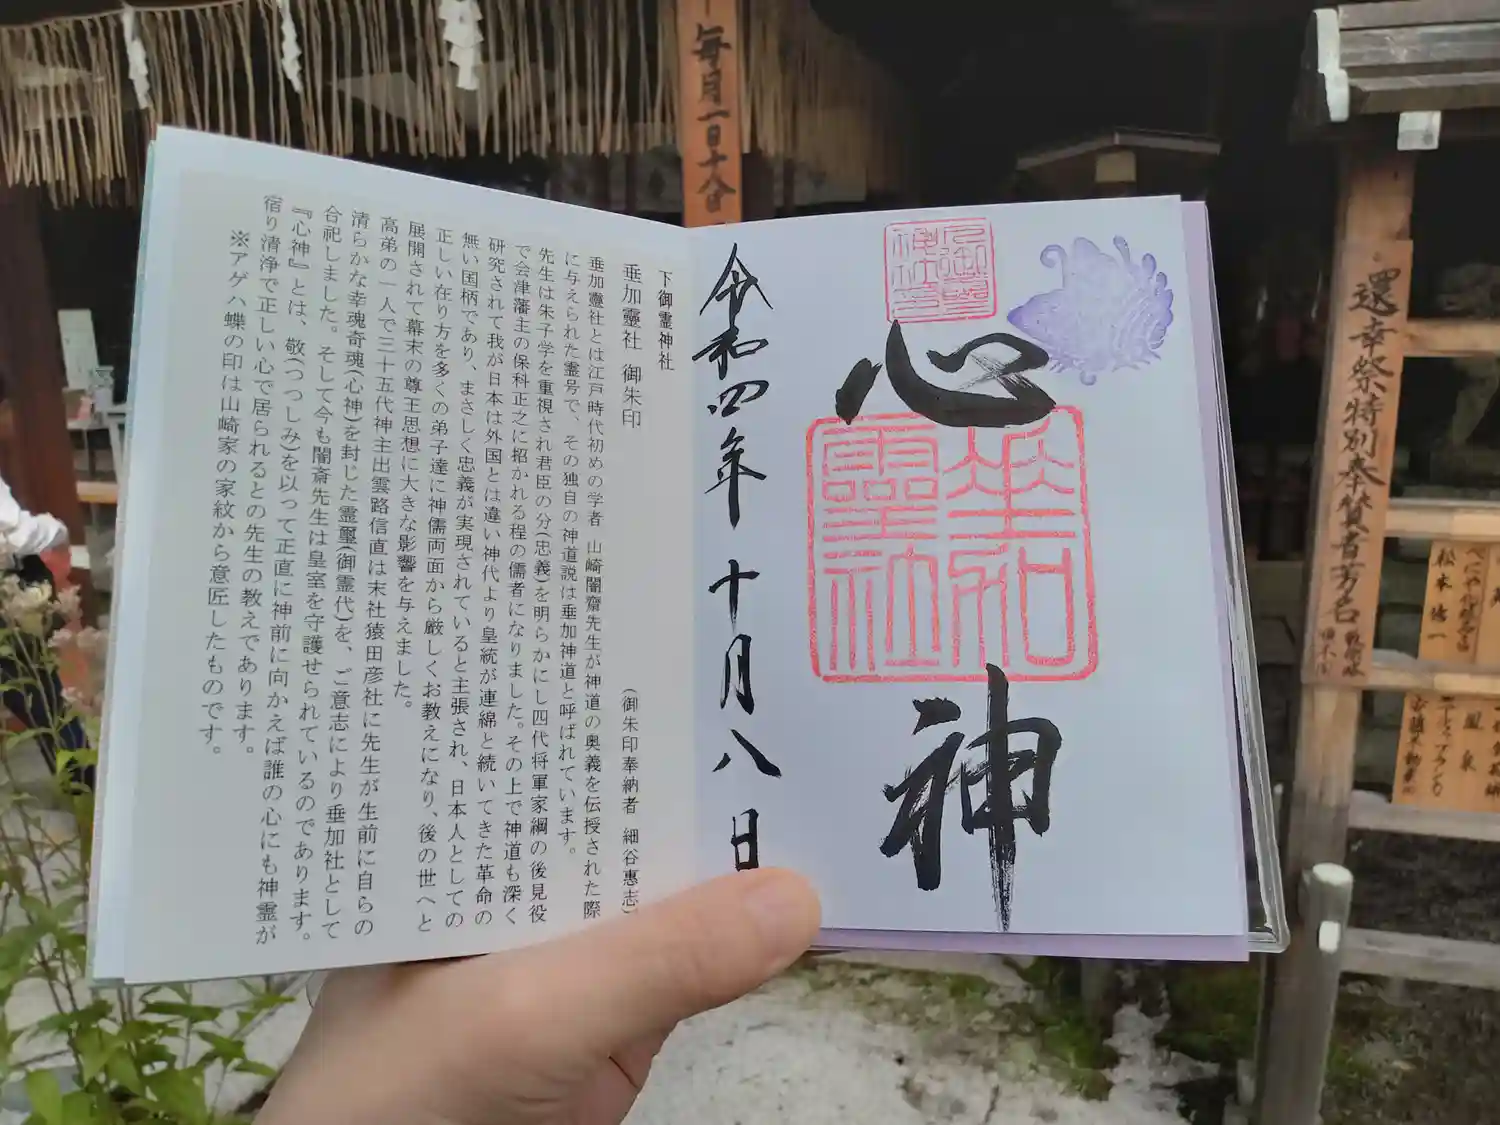 下御霊神社
垂加靈社　御朱印
(御朱印奉納者　細谷惠志)
垂加靈社とは江戸時代初めの学者　山崎闇齋先生が神道の奥義を伝授された際
に与えられた霊号で、その独自の神道説は垂加神道と呼ばれています。
先生は朱子学を重視され君臣の分(忠義)を明らかにし四代将軍家綱の後見役
で会津藩主の保科正之に招かれる程の儒者になりました。その上で神道も深く
研究されて我が日本は外国とは違い神代より皇統が連綿と続いてきた革命の
無い国柄であり、まさしく忠義が実現されていると主張され、日本人としての
正しい在り方を多くの弟子達に神儒両面から厳しくお教えになり、後の世へと
展開されて幕末の尊王思想に大きな影響を与えました。
高弟の一人で三十五代神主出雲路信直は末社猿田彦社に先生が生前に自らの
清らかな幸魂奇魂(心神)を封じた霊璽(御霊代)を、ご意志により垂加社として
合祀しました。そして今も闇斎先生は皇室を守護せられているのであります。
『心神』とは、敬(つつしみ)を以って正直に神前に向かえば誰の心にも神霊が
宿り清浄で正しい心で居られるとの先生の教えであります。
※アゲハ蝶の印は山崎家の家紋から意匠したものです。
心神
下御霊神社
垂加靈社
令和四年十月八日
毎月一日十八日
還幸祭特別奉賛者芳名
松本悠一